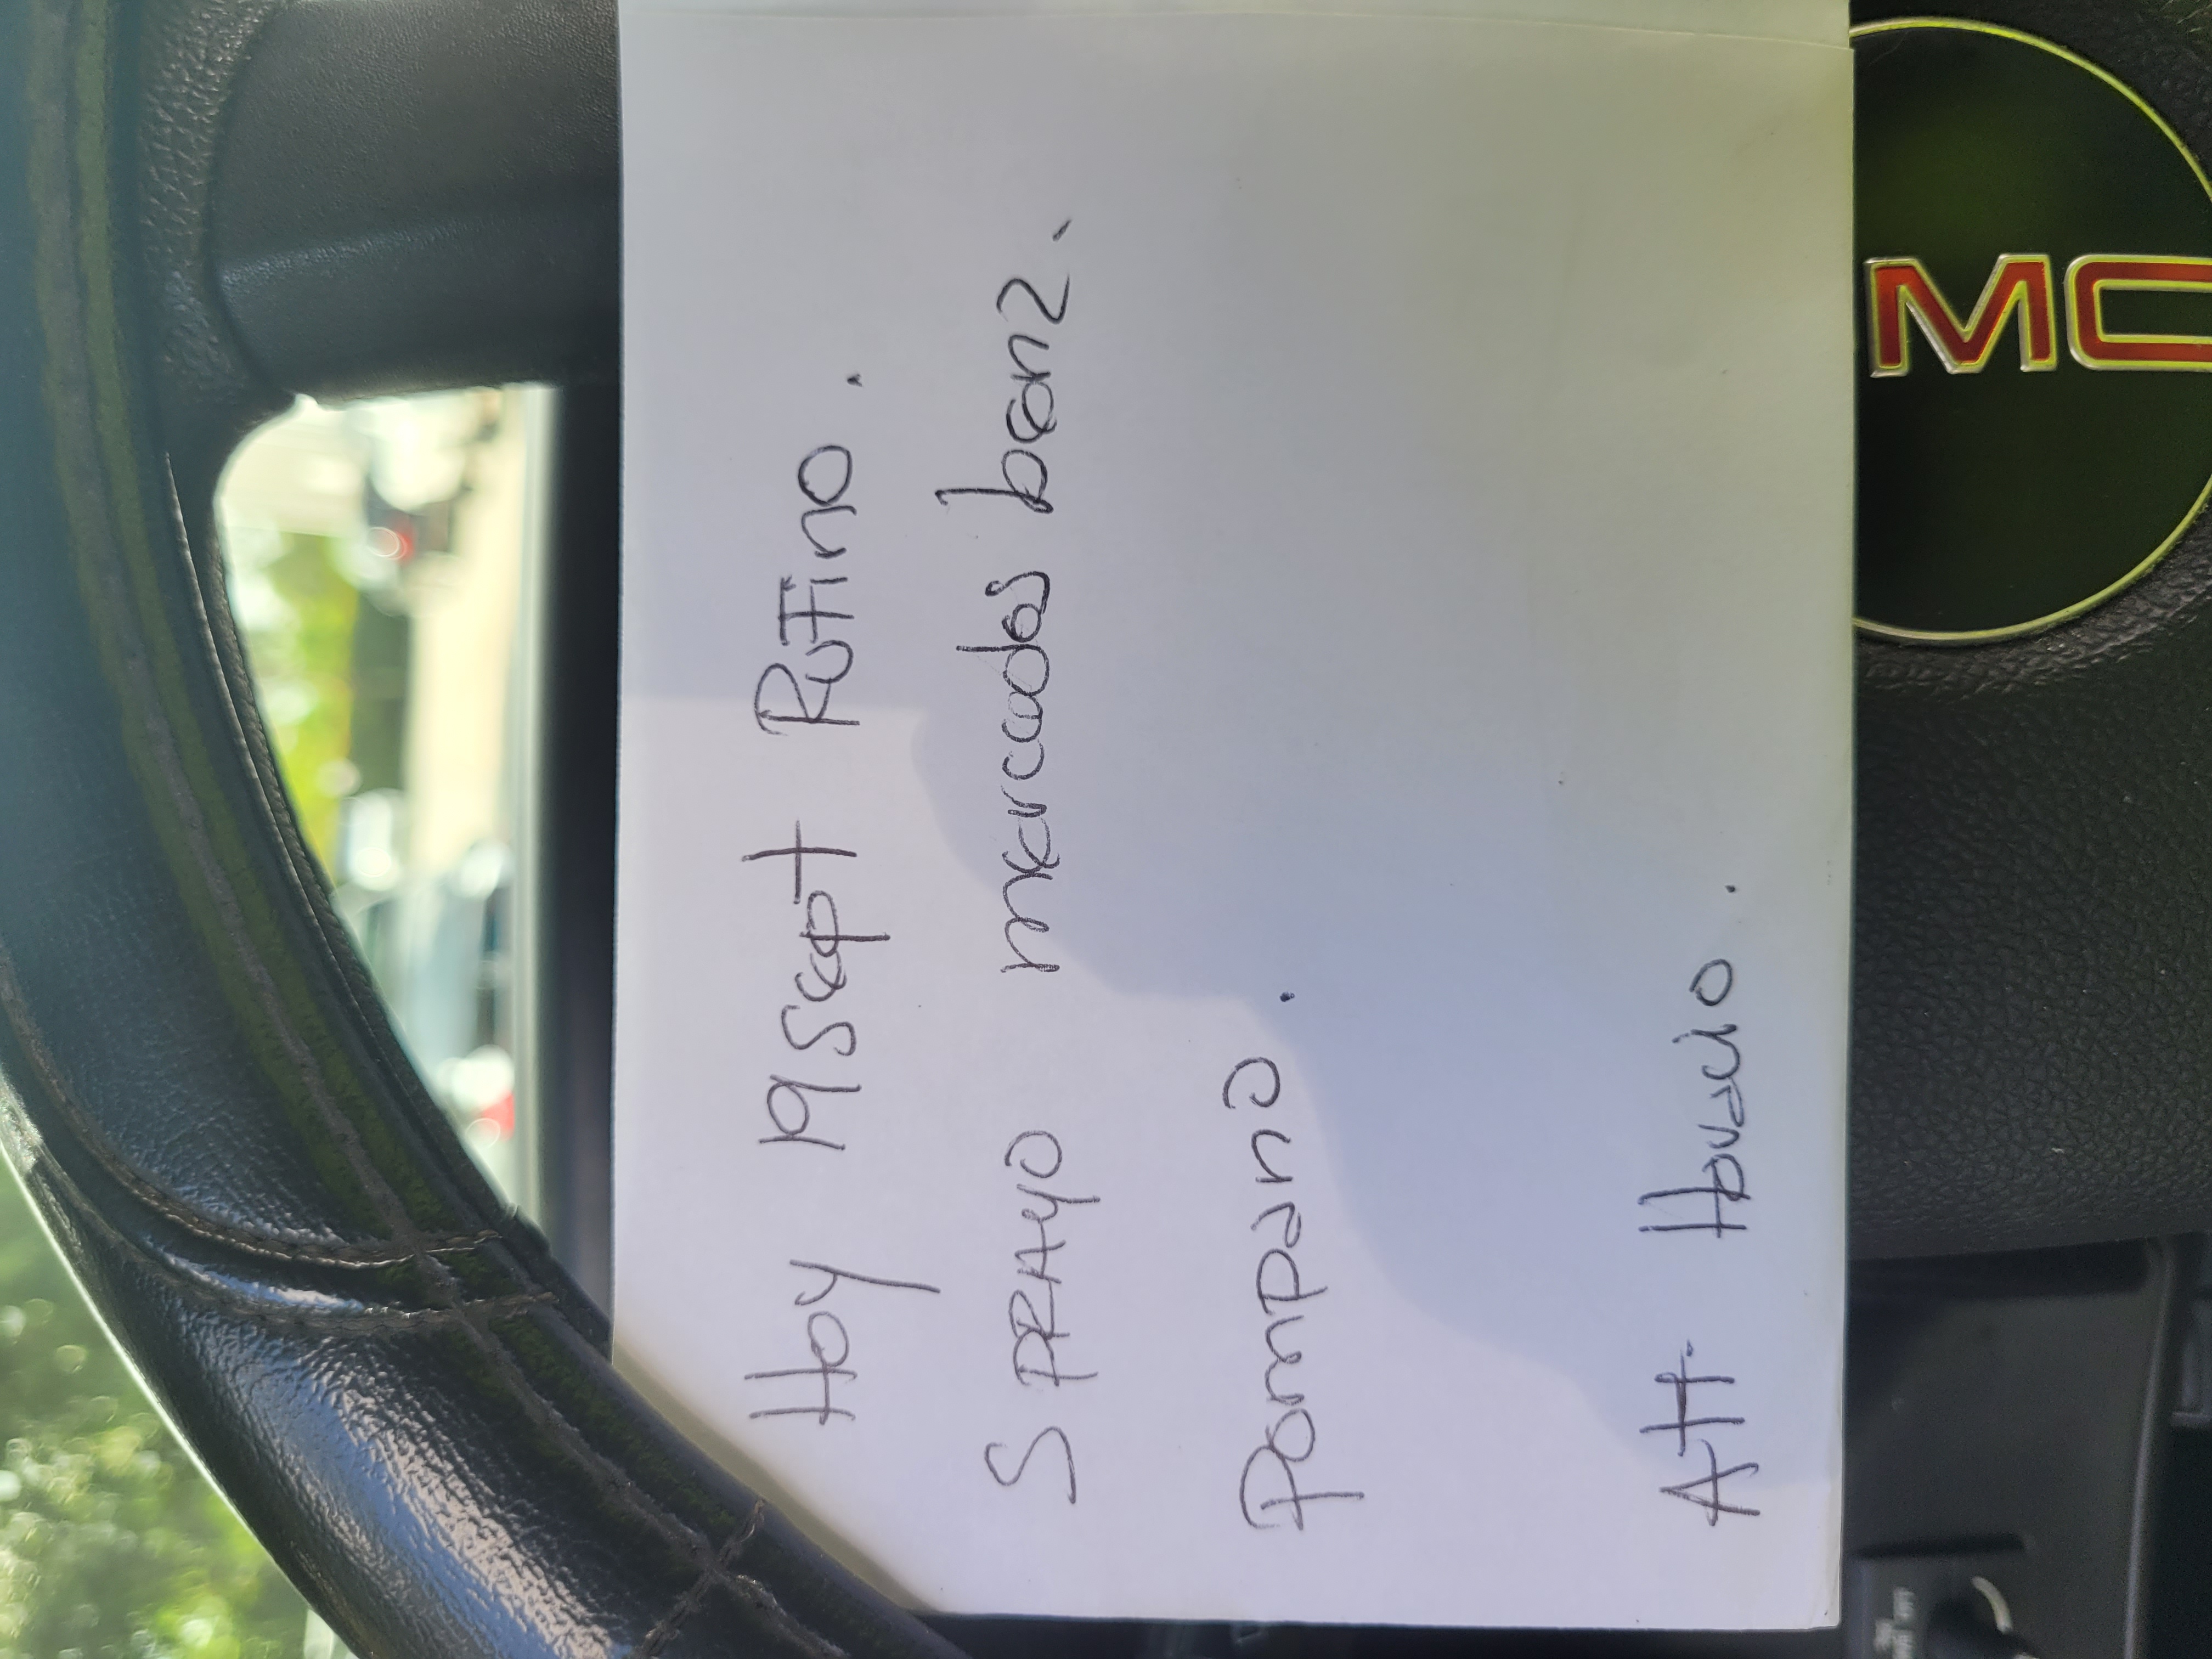 Hoy 19 sept Rufino.
SPRAYO mercades benz.
Pompano.
Att. Horacio.
MC